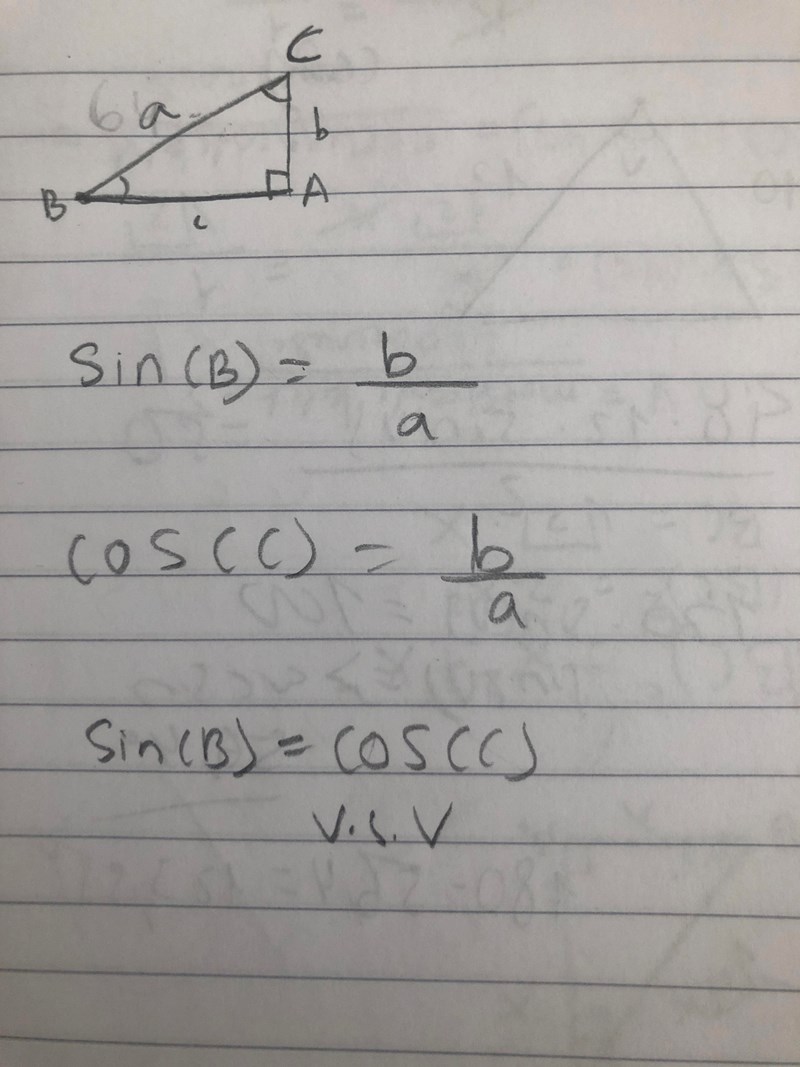 C
a
b
B
A
c
Sin(B) = b/a
cos(C) = b/a
Sin(B) = cos(C)
V.S.V